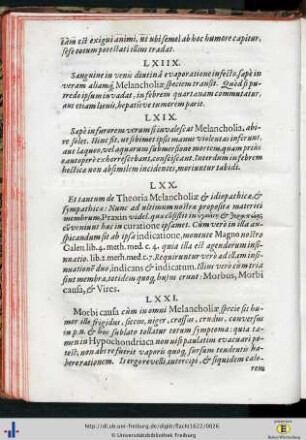 tàm est exigui animi, ut ubi semel ab hoc humore capitur,
sese totum potestati illius tradat.
LXIIX.
Sanguine in venis diutinâ evaporatione infecto, sæpè in
veram aliamq; Melancholiæ speciem transit. Quòd si pu-
tredo ipsum invadat, in febrem quartanam commutatur,
aut etiam lienis, hepatisve tumorem parit.
LXIX.
Sæpè in furorem verum si invalescat Melancholia, abi-
re solet. Hinc ut sibimet ipsi manus violentas inferant,
aut laqueo, vel aquarum submersione mortem, quam priùs
tantoperè exhorrescebant, consciscant. Interdum in febrem
hectica non absimilem incidentes, moriuntur tabidi.
LXX.
Et tantum de Theoria Melancholiæ & idiopathicæ, &
sympathicæ: Nunc ad ultimum nostræ propositæ materiei
membrum, Praxin videl. quæ consistit in
conveniunt hæc in curatione ipsamet. Cum verò in illa au-
spicandum sit ab ipsa indicatione, monente Magno nostro
Galen. lib. 4. meth. med. c. 4. quia illa est agendorum insi-
nuatio. lib. 2. meth. med. c. 7. Requiruntur verò ad illam insi-
nuationē duo, indicans & indicatum. Illius verò cùm tria
sint membra, totidem quoq; huius erunt: Morbus, Morbi
causa, & Vires.
LXXI.
Morbi causa cùm in omni Melancholiæ specie sit hu-
mor ille frigidus, siccus, niger, crassus, crudus, conversus
in p. n. & hoc sublato tollitur totum symptoma: quia ta-
men in Hypochondriaca non uisi paulatim evacuari po-
test, non abre fuerit vaporis quoq; sursum tendentis ha-
bere rationem. Is ergo revelli, intercipi, & siquidem calo-
rem
http://dl.ub.uni-freiburg.de/diglit/flacht1622/0026
© Universitätsbibliothek Freiburg